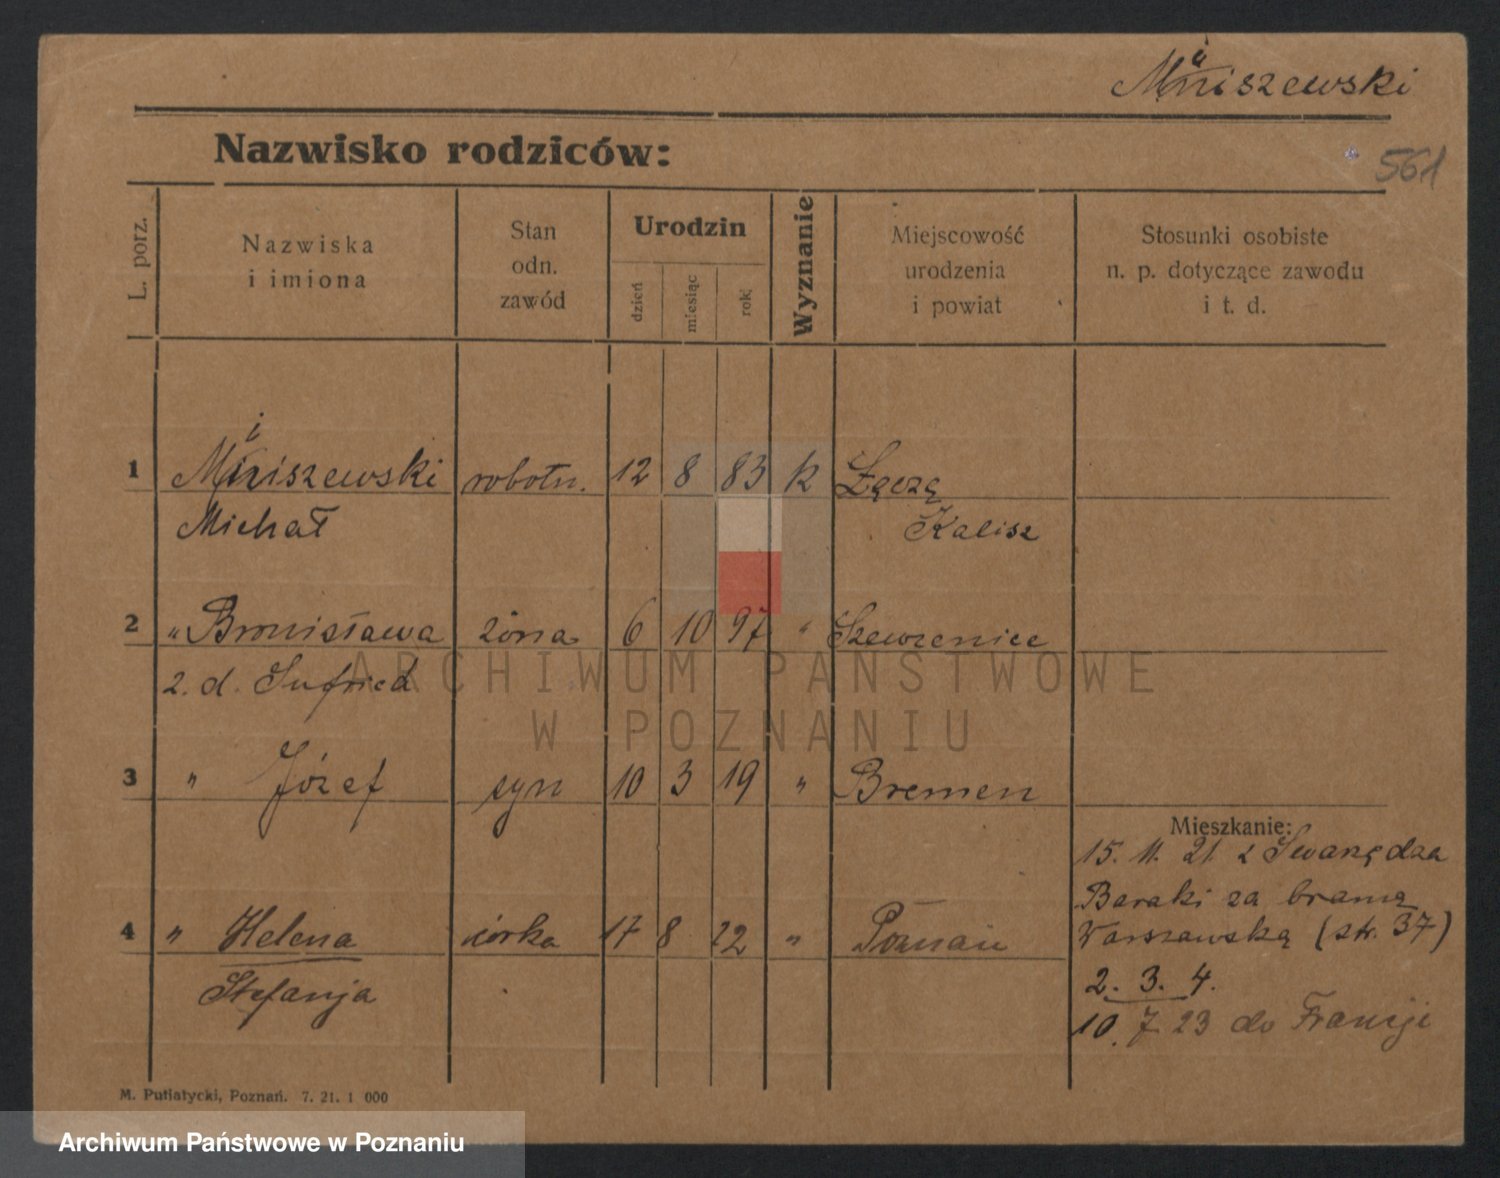 Mniszewski
Nazwisko rodziców:
561
L. porz.
Nazwiska
i imiona
Stan
odn.
zawód
Urodzin
dzień
miesiąc
rok
Wyznanie
Miejscowość
urodzenia
i powiat
Stosunki osobiste
n. p. dotyczące zawodu
i t. d.
1 Mniszewski robotn. 12 8 83 k
Michał Kalisz
2 " Bronisława żona 6 10 97 " Szewcenice
z. d.
ARCHIWUM PAŃSTWOWE
W POZNANIU
3 " Józef syn 10 3 19 " Bremen
Mieszkanie:
15. 11. 21 z Swarzędza
Baraki za bramą
4 " Helena córka 17 8 22 " Poznań
Warszawską (str. 37)
Stefanja
2. 3. 4.
10. 7. 23 do Francji
M. Putiatycki, Poznań. 7. 21. 1 000
Archiwum Państwowe w Poznaniu